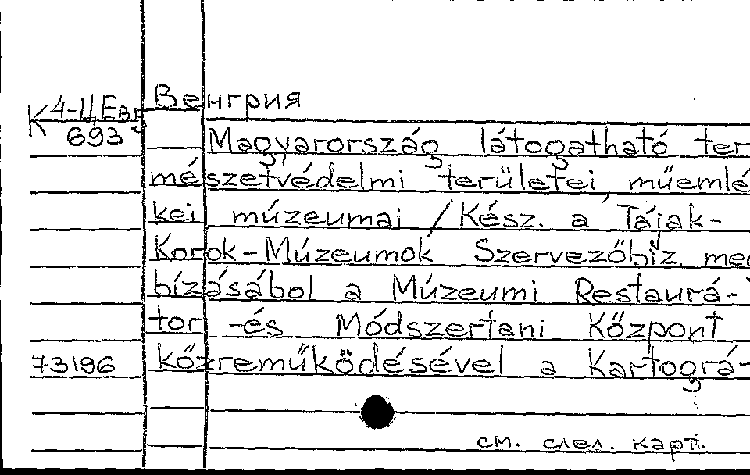 Венгрия
К 4-Ц.Евр
693
Magyarország látogatható ter
mészetvédelmi területei, műemlé
kei múzeumai / Kész. a Tájak-
Korok-Múzeumok Szervezőbiz. me
bízásából a Múzeumi Restaurá-
tor -és Módszertani Központ
73196 közreműködésével a Kartográ-
см. след. карт.